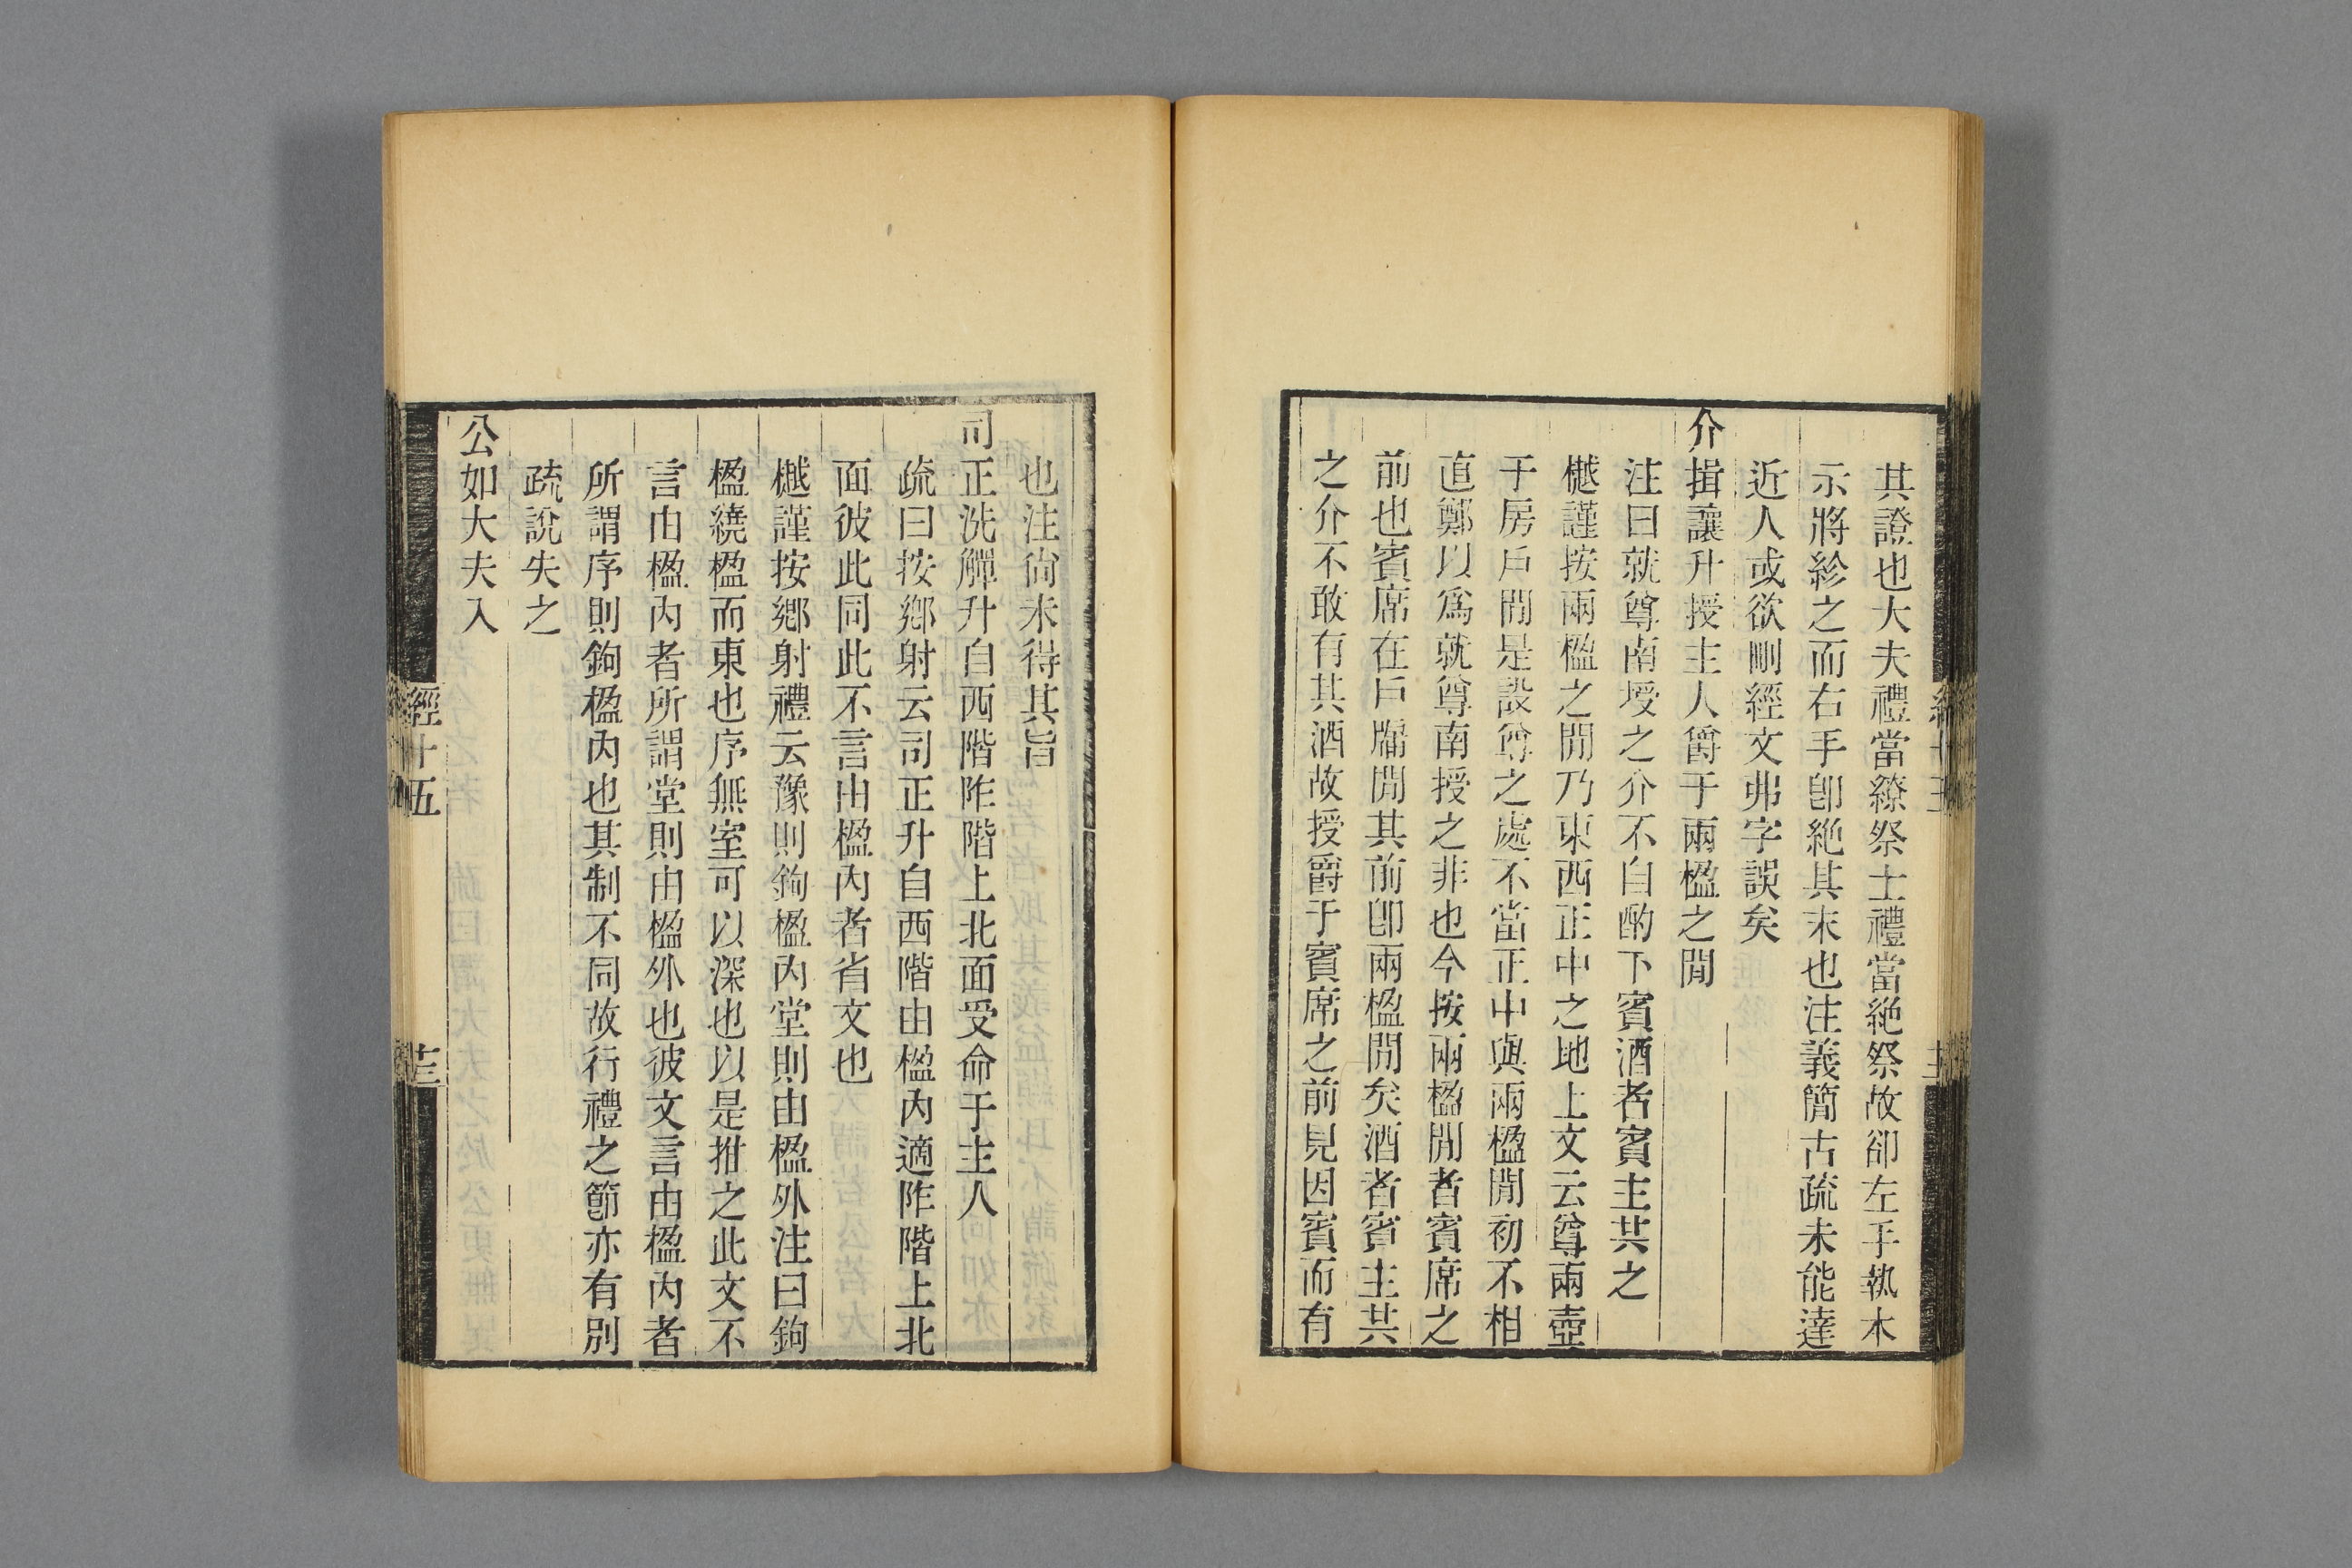 其證也大夫禮當繚祭士禮當絶祭故卻左手執本
示將紾之而右手卽絶其末也注義簡古疏未能達
近人或欲刪經文弗字誤矣
介揖讓升授主人爵于兩楹之閒
注曰就尊南授之介不自酌下賓酒者賓主共之
樾謹按兩楹之閒乃東西正中之地上文云尊兩壺
于房戶閒是設尊之處不當正中與兩楹閒初不相
直鄭以爲就尊南授之非也今按兩楹閒者賓席之
前也賓席在戶牖閒其前卽兩楹閒矣酒者賓主共
之介不敢有其酒故授爵于賓席之前見因賓而有
也注尙未得其旨
司正洗觶升自西階阼階上北面受命于主人
疏曰按鄉射云司正升自西階由楹內適阼階上北
面彼此同此不言由楹內者省文也
樾謹按鄉射禮云豫則鉤楹內堂則由楹外注曰鉤
楹繞楹而東也序無室可以深也以是推之此文不
言由楹內者所謂堂則由楹外也彼文言由楹內者
所謂序則鉤楹內也其制不同故行禮之節亦有別
疏說失之
公如大夫入
經十五
十三